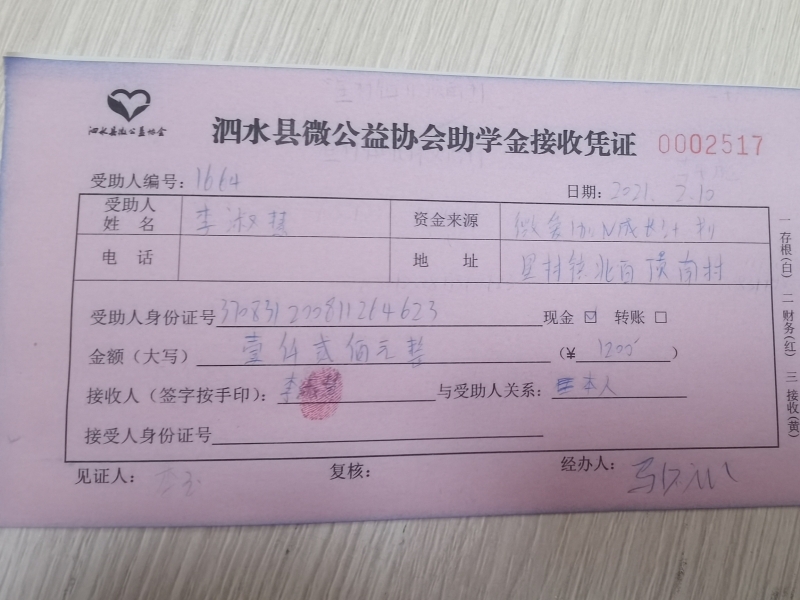 泗水县微公益协会
泗水县微公益协会助学金接收凭证 0002517
受助人编号：1664 日期：2021.2.10
受助人姓名 李淑 资金来源
电话 地址 村镇北百顶南村
受助人身份证号 370831200811264623 现金 ☑ 转账 □
金额（大写） 壹仟贰佰元整 （¥ 1200 ）
接收人（签字按手印）： 李 与受助人关系： 本人
接受人身份证号
见证人： 复核： 经办人：
一存根(白) 二财务(红) 三接收(黄)